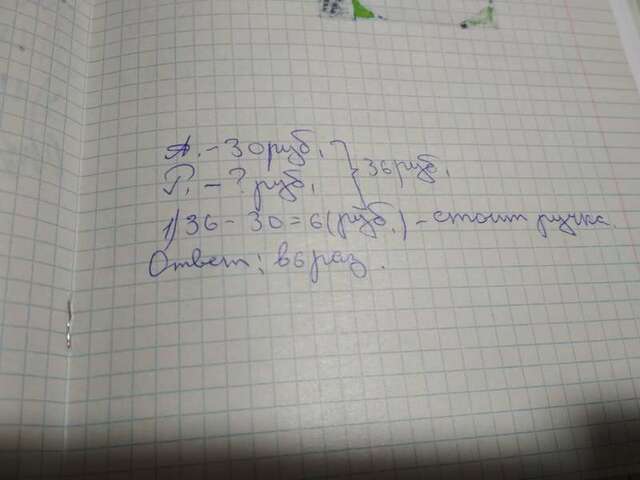 А. - 30 руб. } 36 руб.
Р. - ? руб.
1) 36 - 30 = 6 (руб.) - стоит ручка.
Ответ: в 6 раз.